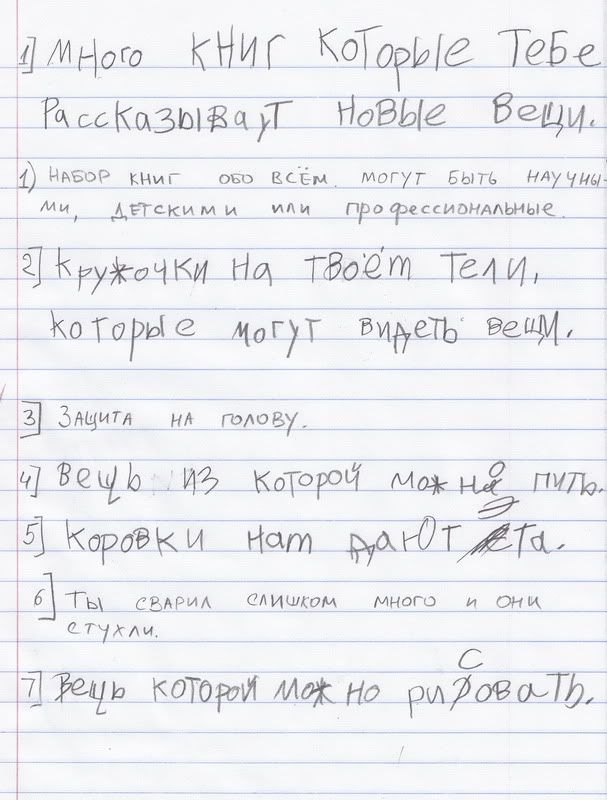 1] Много книг которые тебе
Рассказывают новые вещи.
1) Набор книг обо всём. могут быть научны-
ми, детскими или профессиональные.
2] Кружочки на твоём тели,
которые могут видеть вещи.
3] Защита на голову.
4] Вещь из которой можно пить.
5] Коровки нам дают эта.
6] Ты сварил слишком много и они
стухли.
7] Вещь которой можно рисовать.